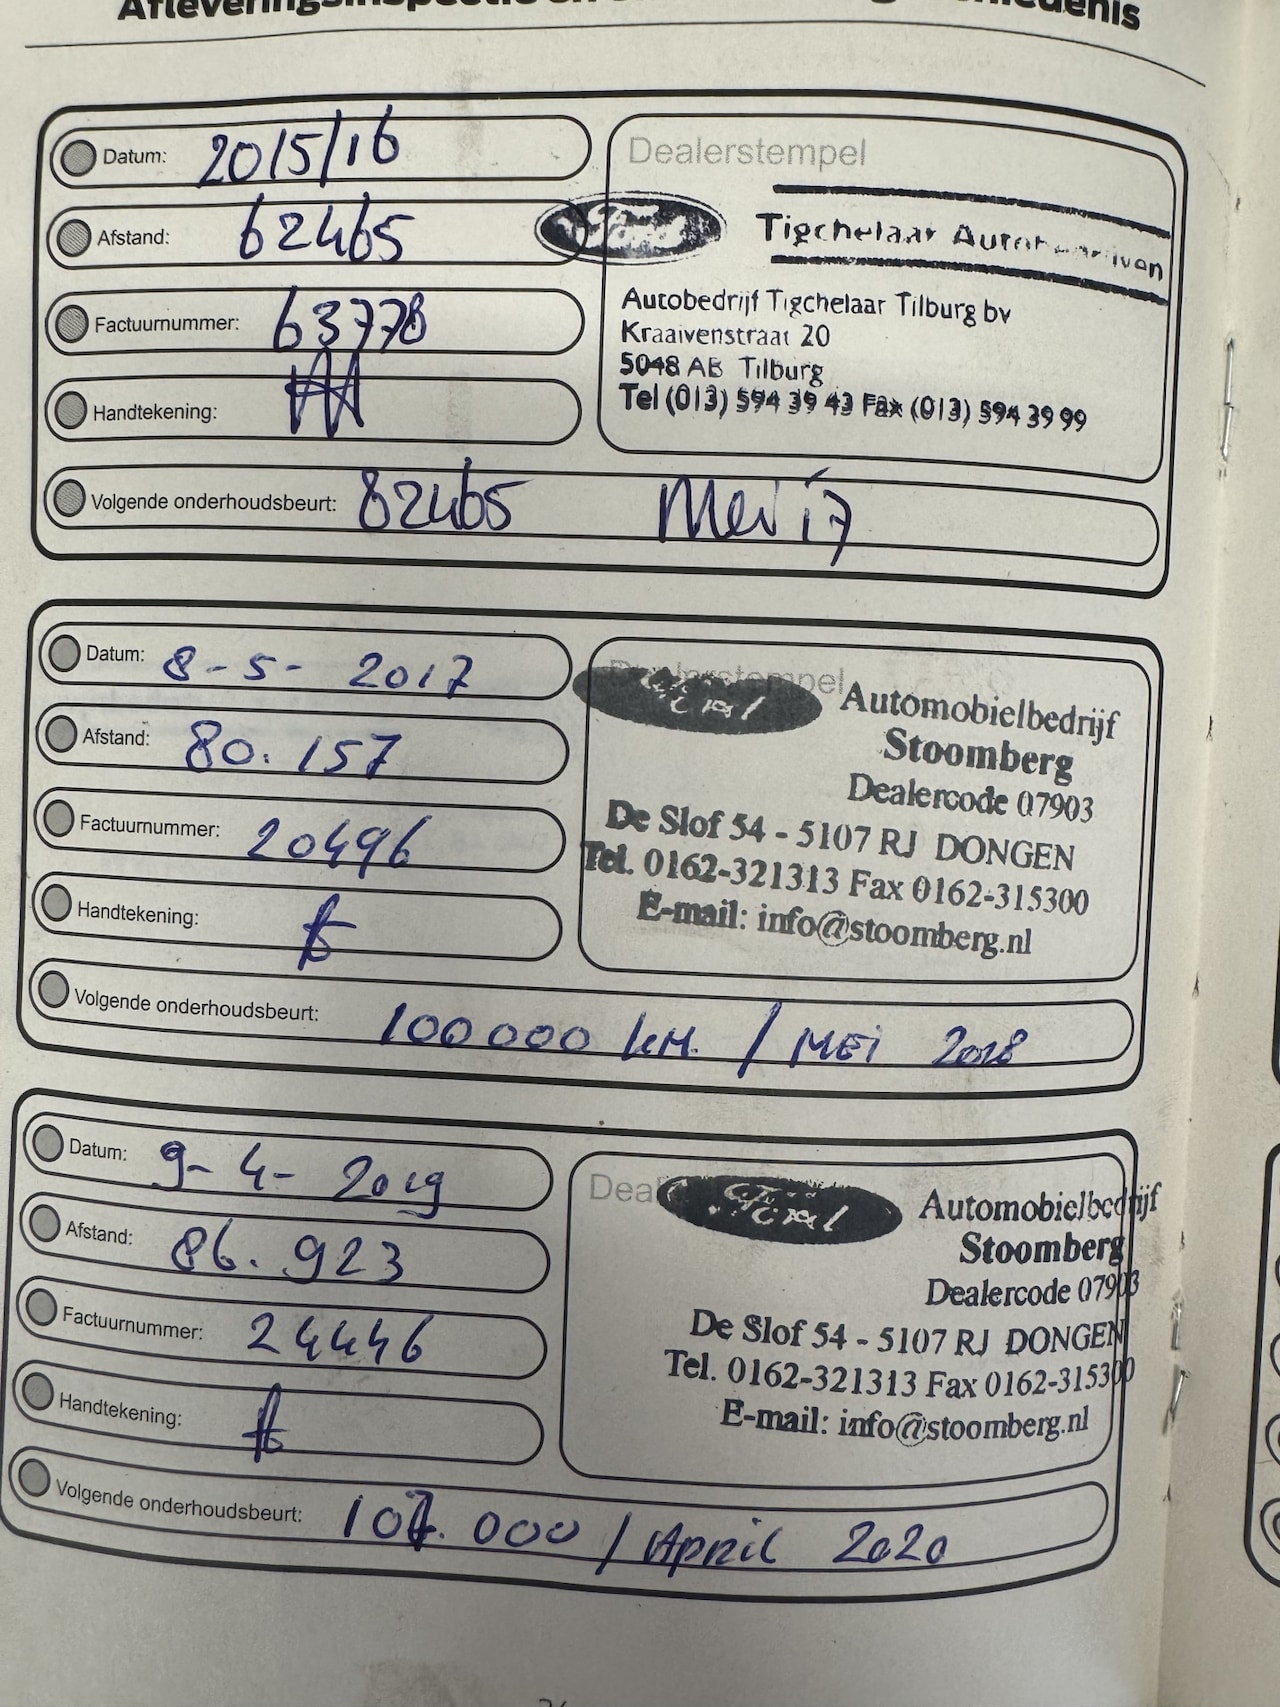 Datum: 2015/16
Afstand: 62465
Factuurnummer: 63778
Handtekening:
Volgende onderhoudsbeurt: 82465 Mei 17
Dealerstempel
Ford
Tigchelaar
Autobedrijf Tigchelaar Tilburg bv
Kraaivenstraat 20
5048 AB Tilburg
Tel (013) 594 39 43 Fax (013) 594 39 99
Datum: 8-5-2017
Afstand: 80.157
Factuurnummer: 20496
Handtekening:
Volgende onderhoudsbeurt: 100000 km. / MEi 2018
Dealerstempel
Ford
Automobielbedrijf
Stoomberg
Dealercode 07903
De Slof 54 - 5107 RJ DONGEN
Tel. 0162-321313 Fax 0162-315300
E-mail: info@stoomberg.nl
Datum: 9-4-2019
Afstand: 86.923
Factuurnummer: 24446
Handtekening:
Volgende onderhoudsbeurt: 107.000 / April 2020
Ford
Automobielbedrijf
Stoomberg
Dealercode 07903
De Slof 54 - 5107 RJ DONGEN
Tel. 0162-321313 Fax 0162-315300
E-mail: info@stoomberg.nl